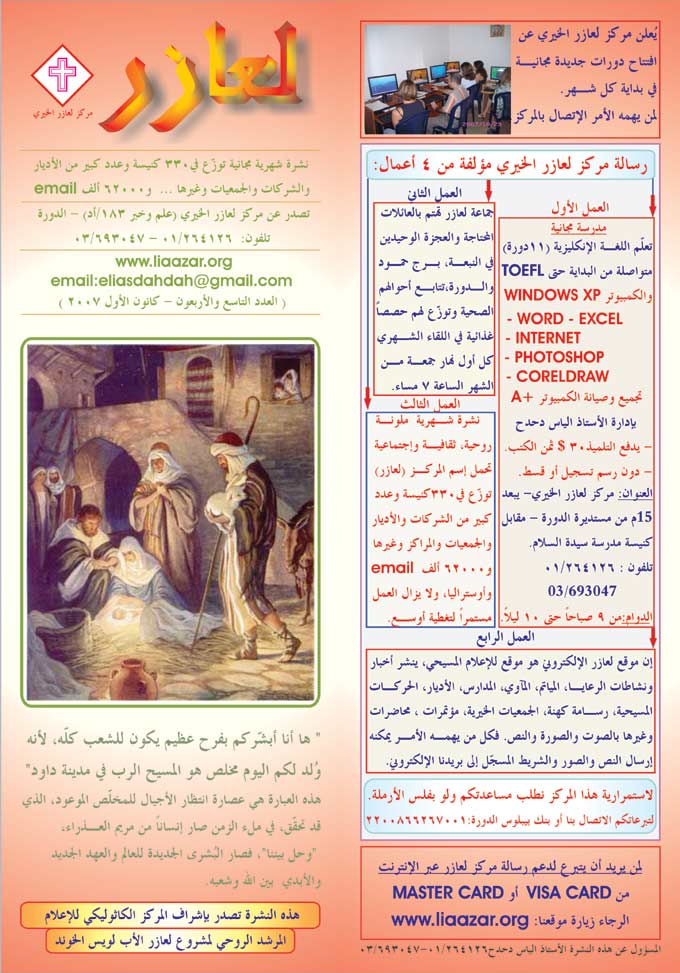 لعازر
مركز لعازر الخيري
نشرة شهرية مجانية توزّع في ٣٣٠ كنيسة وعدد كبير من الأديار
والشركات والجمعيات وغيرها ... و ٦٢٠٠٠ ألف email
تصدر عن مركز لعازر الخيري (علم وخبر ١٨٣/أد) – الدورة
تلفون: ٠١/٢٦٤١٢٦ – ٠٣/٦٩٣٠٤٧
www.liaazar.org
email:eliasdahdah@gmail.com
( العدد التاسع والأربعون – كانون الأول ٢٠٠٧ )
" ها أنا أبشّركم بفرح عظيم يكون للشعب كلّه، لأنه
وُلد لكم اليوم مخلص هو المسيح الرب في مدينة داود"
هذه العبارة هي عصارة انتظار الأجيال للمخلّص الموعود، الذي
قد تحقّق، في ملء الزمن صار إنساناً من مريم العـــذراء،
"وحل بيننا"، فصار البُشرى الجديدة للعالم والعهد الجديد
والأبدي بين الله وشعبه.
هذه النشرة تصدر بإشراف المركز الكاثوليكي للإعلام
المرشد الروحي لمشروع لعازر الأب لويس الخوند
يُعلن مركز لعازر الخيري عن
افتتاح دورات جديدة مجانيـــة
في بداية كل شـــهر.
لمن يهمه الأمر الإتصال بالمركز
2007/10/25
رسالة مركز لعازر الخيري مؤلفة من ٤ أعمال:
العمل الأول
مدرسة مجانية
تعلّم اللغـة الإنكليزية (١١دورة)
متواصلة من البداية حتى TOEFL
والكمبيوتر WINDOWS XP
- WORD - EXCEL
- INTERNET
- PHOTOSHOP
- CORELDRAW
تجميع وصيانة الكمبيوتر +A
بإدارة الأستاذ الياس دحدح
– يدفع التلميذ ٣٠ $ ثمن الكتب.
– دون رسم تسجيل أو قسط.
العنوان: مركز لعازر الخيري– يبعد
15م من مستديرة الدورة – مقابل
كنيسة مدرسة سيدة السلام.
تلفون : ٠١/٢٦٤١٢٦
03/693047
الدوام:من ٩ صباحاً حتى ١٠ ليلاً.
العمل الثاني
جماعة لعازر تهتم بالعائلات
المحتاجة والعجزة الوحيدين
في النبعة، بـــرج حمـــود
والـــدورة،تتابـع أحوالهم
الصحية وتوزّع لهم حصصاً
غذائية في اللقاء الشهـــري
كل أول نهار جمعـة مـــن
الشهر الساعة ٧ مساء.
العمل الثالث
نشرة شـــهرية ملونـــة
روحية، ثقافيـة وإجتماعية
تحمل إسم المركـــز (لعازر)
توزّع في ٣٣٠كنيسة وعدد
كبير من الشركات والأديار
والجمعيات والمراكز وغيرها
و ٦٢٠٠٠ ألف email
وأوستراليا، ولا يزال العمل
مستمراً لتغطية أوســـع.
العمل الرابع
إن موقع لعازر الإلكترونيّ هو موقع للإعلام المسيحي، ينشر أخبار
ونشاطات الرعايـــا، المياتم، المآوي، المدارس، الأديار، الحركـــات
المسيحية، رســـامة كهنة، الجمعيات الخيرية، مؤتمرات ، محاضرات
وغيرها بالصوت والصورة والنص. فكل من يهمـــه الأمـــر يمكنه
إرسال النص والصور والشريط المسجّل إلى بريدنا الإلكترونيّ.
لاستمرارية هذا المركز نطلب مساعدتكم ولو بفلس الأرملة.
لتبرعاتكم الاتصال بنا أو بنك بيبلوس الدورة:٢٢٠٠٨٦٦٢٦٧٠٠١
لمن يريد أن يتبرع لدعم رسالة مركز لعازر عبر الإنترنت
من VISA CARD أو MASTER CARD
الرجاء زيارة موقعنا: www.liaazar.org
المسؤول عن هذه النشرة الأستاذ الياس دحدح ٠١/٢٦٤١٢٦-٠٣/٦٩٣٠٤٧